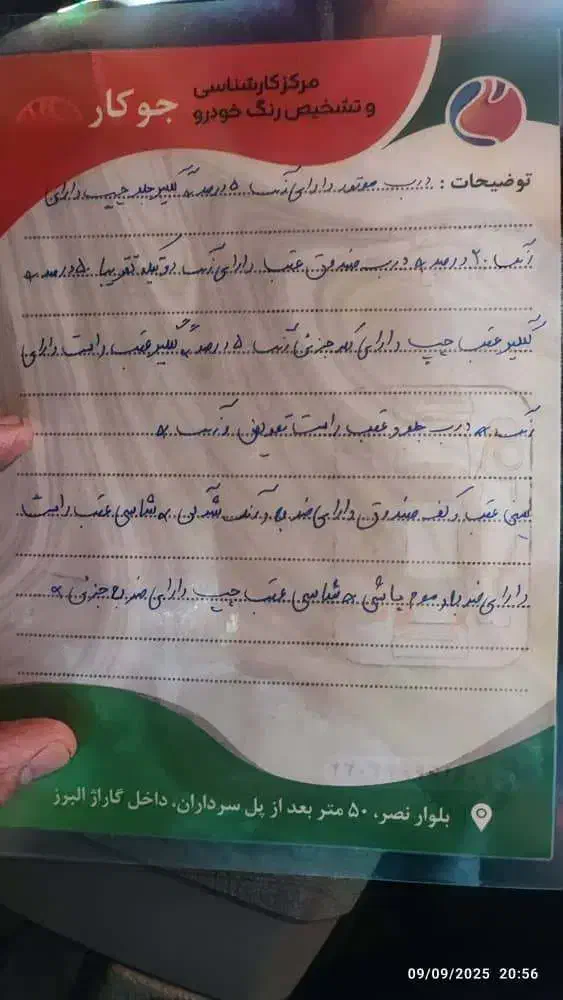 مرکز کارشناسی
و تشخیص رنگ خودرو
جوکار
توضیحات : درب موتور دارای رنگ ۵ درصد * گلگیر جلو چپ دارای
رنگ ۲۰ درصد * درب صندوق عقب دارای رنگ و تقریبا ۵۰ درصد *
گلگیر عقب چپ دارای جزئی رنگ ۵ درصد * گلگیر عقب راست دارای
رنگ * درب جلو و عقب راست تعویض و رنگ *
سینی عقب و کف صندوق دارای ضربه و رنگ شدن * شاسی عقب راست
دارای ضربه و موج پاشی * شاسی عقب چپ دارای ضربه جزئی *
بلوار نصر، ۵۰ متر بعد از پل سرداران، داخل گاراژ البرز
09/09/2025 20:56